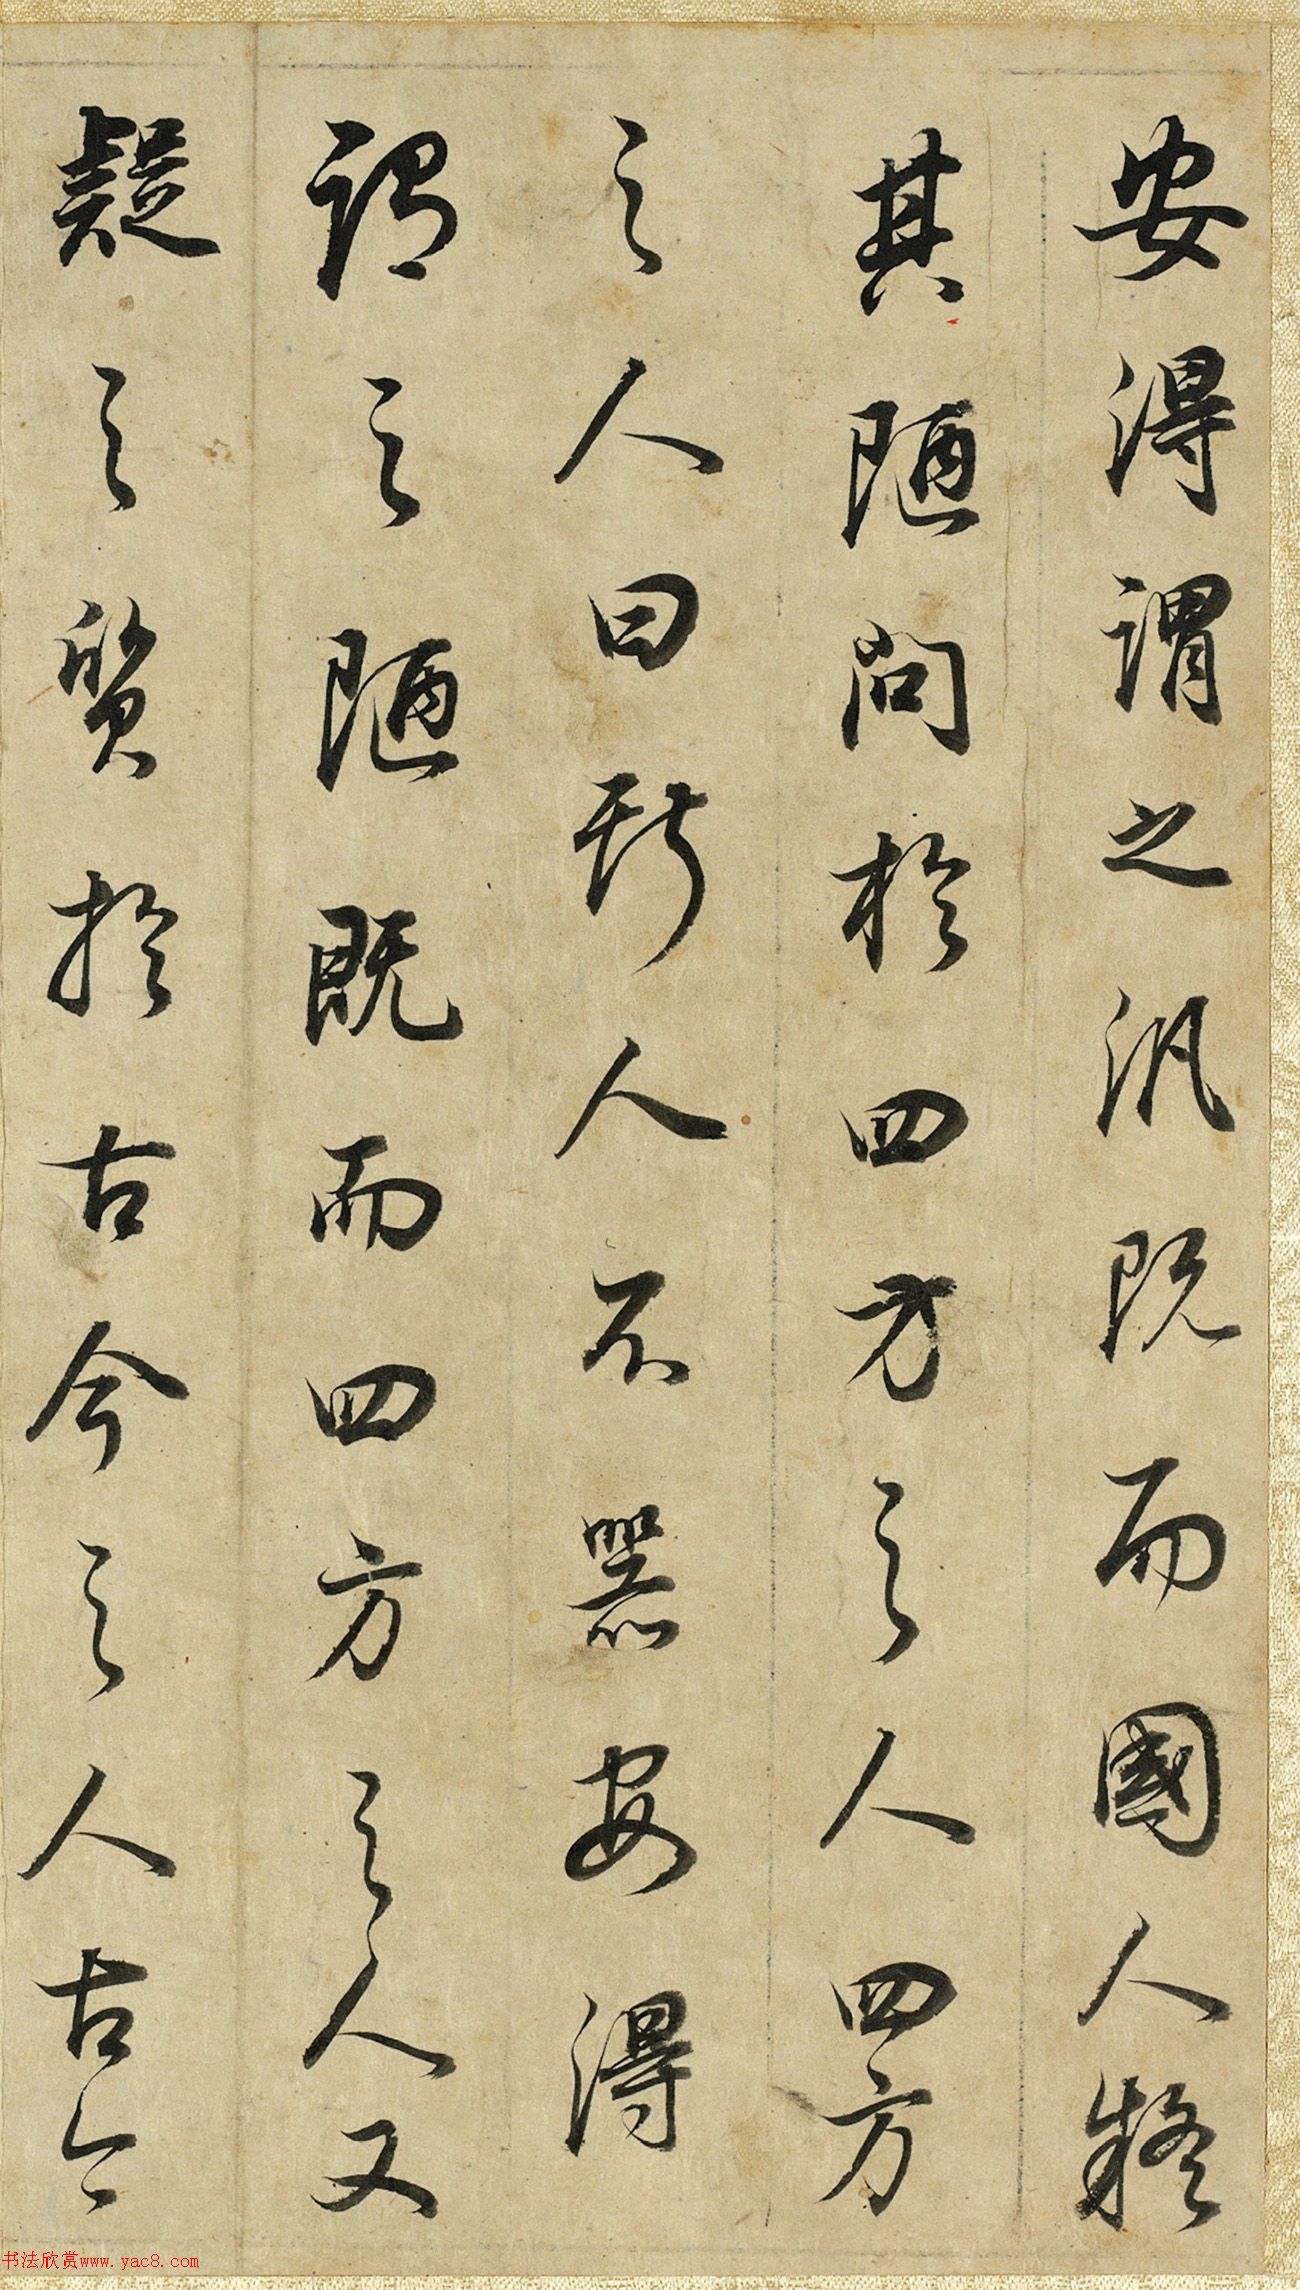 安得謂之汎既而國人疑
其陋問於四方之人四方
之人曰斯人不器安得
謂之陋既而四方之人又
疑之質於古今之人古今
书法欣赏www.yac8.com